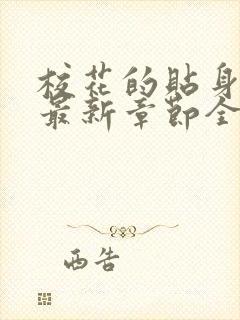 校花的贴身
最新章节全
西告